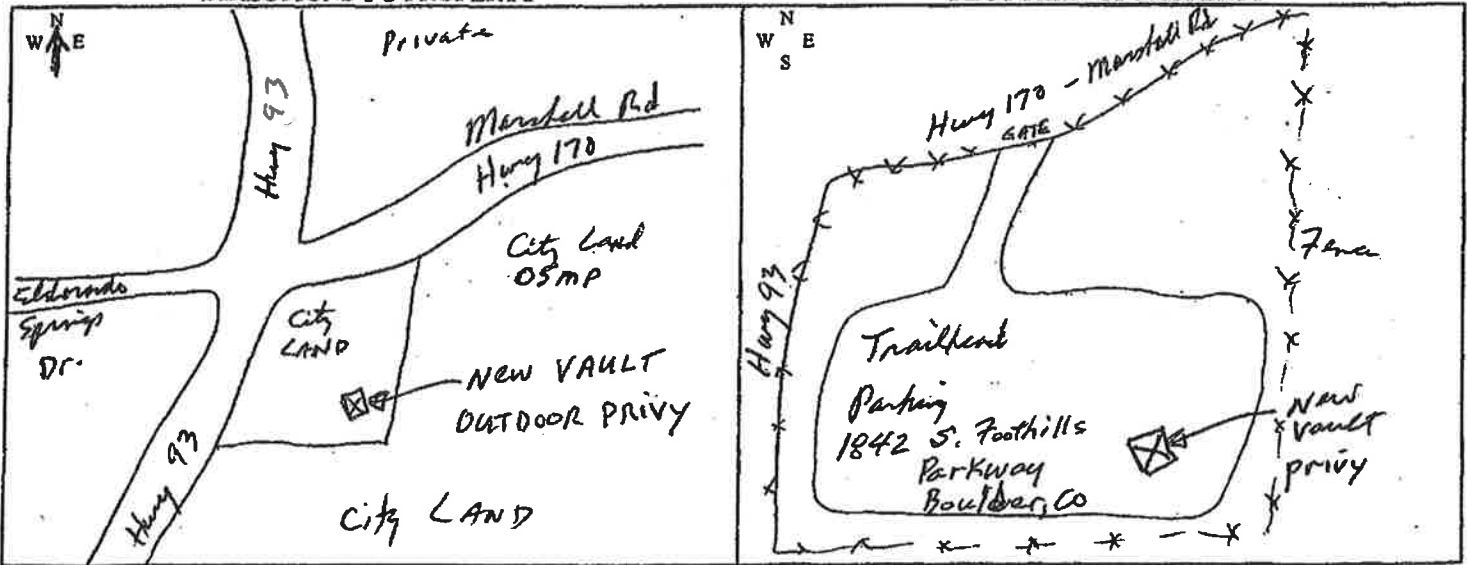 N
W E
Private
Hwy 93
Marshall Rd
Hwy 170
City Land
OSMP
Eldorado
Springs
Dr.
City
LAND
NEW VAULT
OUTDOOR PRIVY
Hwy 93
City LAND
N
W E
S
Hwy 170 - Marshall Rd
GATE
Hwy 93
Fence
Trailhead
Parking
1842 S. Foothills
Parkway
Boulder, CO
New
vault
privy